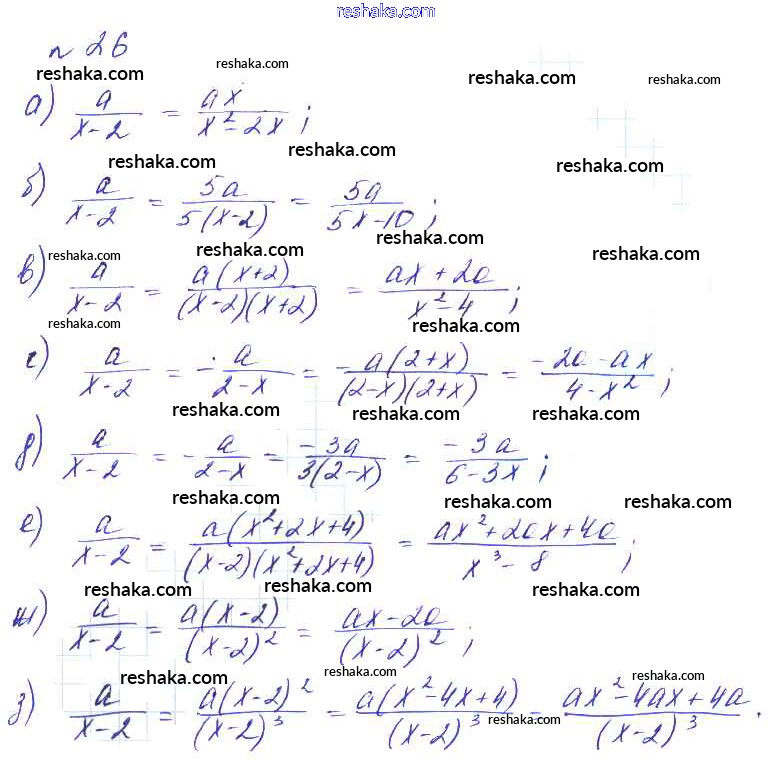 reshaka.com
№ 26
reshaka.com reshaka.com reshaka.com reshaka.com
а) a/(x-2) = ax/(x²-2x);
reshaka.com reshaka.com reshaka.com
б) a/(x-2) = 5a/(5(x-2)) = 5a/(5x-10);
reshaka.com reshaka.com reshaka.com reshaka.com
в) a/(x-2) = a(x+2)/((x-2)(x+2)) = (ax+2a)/(x²-4);
reshaka.com reshaka.com
г) a/(x-2) = -a/(2-x) = -a(2+x)/((2-x)(2+x)) = (-2a-ax)/(4-x²);
reshaka.com reshaka.com reshaka.com
д) a/(x-2) = -a/(2-x) = -3a/(3(2-x)) = -3a/(6-3x);
reshaka.com reshaka.com reshaka.com
е) a/(x-2) = a(x²+2x+4)/((x-2)(x²+2x+4)) = (ax²+2ax+4a)/(x³-8);
reshaka.com reshaka.com reshaka.com
ж) a/(x-2) = a(x-2)/(x-2)² = (ax-2a)/(x-2)²;
reshaka.com reshaka.com reshaka.com
з) a/(x-2) = a(x-2)²/(x-2)³ = a(x²-4x+4)/(x-2)³ = (ax²-4ax+4a)/(x-2)³.
reshaka.com